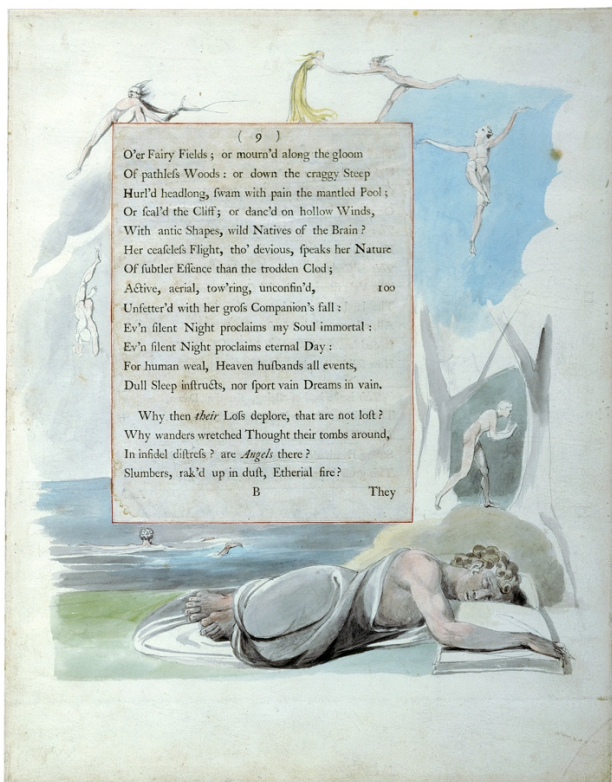 ( 9 )
O'er Fairy Fields ; or mourn'd along the gloom
Of pathleſs Woods : or down the craggy Steep
Hurl'd headlong, ſwam with pain the mantled Pool ;
Or ſcal'd the Cliff ; or danc'd on hollow Winds,
With antic Shapes, wild Natives of the Brain ?
Her ceaſeleſs Flight, tho' devious, ſpeaks her Nature
Of ſubtler Eſſence than the trodden Clod ;
Active, aerial, tow'ring, unconfin'd, 100
Unfetter'd with her groſs Companion's fall :
Ev'n ſilent Night proclaims my Soul immortal :
Ev'n ſilent Night proclaims eternal Day :
For human weal, Heaven huſbands all events,
Dull Sleep inſtructs, nor ſport vain Dreams in vain.
Why then their Loſs deplore, that are not loſt ?
Why wanders wretched Thought their tombs around,
In infidel diſtreſs ? are Angels there ?
Slumbers, rak'd up in duſt, Etherial fire ?
B They